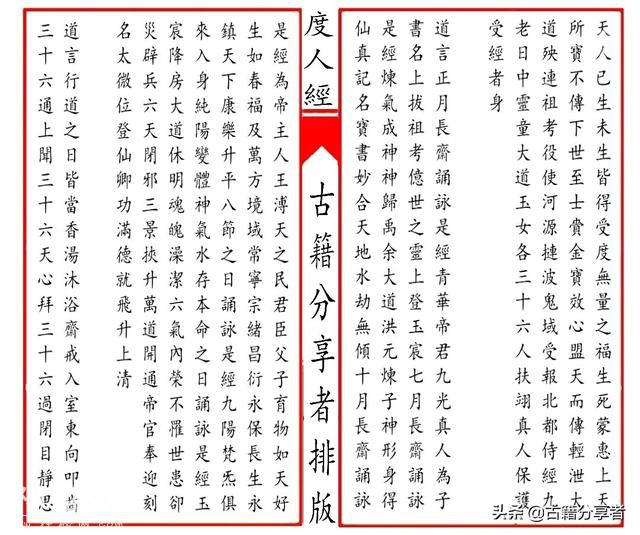 天人已生未生皆得受度無量之福生死蒙惠上天
所寶不傳下世至士賫金寶效心盟天而傳輕泄大
道殃連祖考役使河源摙波鬼域受報北都侍經九
老日中靈童大道玉女各三十六人扶翊真人保護
受經者身
道言正月長齋誦詠是經青華帝君九光真人為子
書名上拔祖考億世之靈上登玉宸七月長齋誦詠
是經煉氣成神神歸禹余大道洪元煉子神形身得
仙真記名寶書妙合天地水劫無傾十月長齋誦詠
度人經
古籍分享者排版
是經為帝主人王溥天之民君臣父子育物如天好
生如春福及萬方境域常寧宗緒昌衍永保長生永
鎮天下康樂升平八節之日誦詠是經九陽梵炁俱
來入身純陽變體神氣水存本命之日誦詠是經玉
宸降房大道休明魂魄澡潔六氣內榮不罹世患卻
災辟兵六天閉邪三景挾升萬道開通帝官奉迎刻
名太微位登仙卿功滿德就飛升上清
道言行道之日皆當香湯沐浴齋戒入室東向叩齒
三十六通上聞三十六天心拜三十六過閉目靜思
头条@古籍分享者